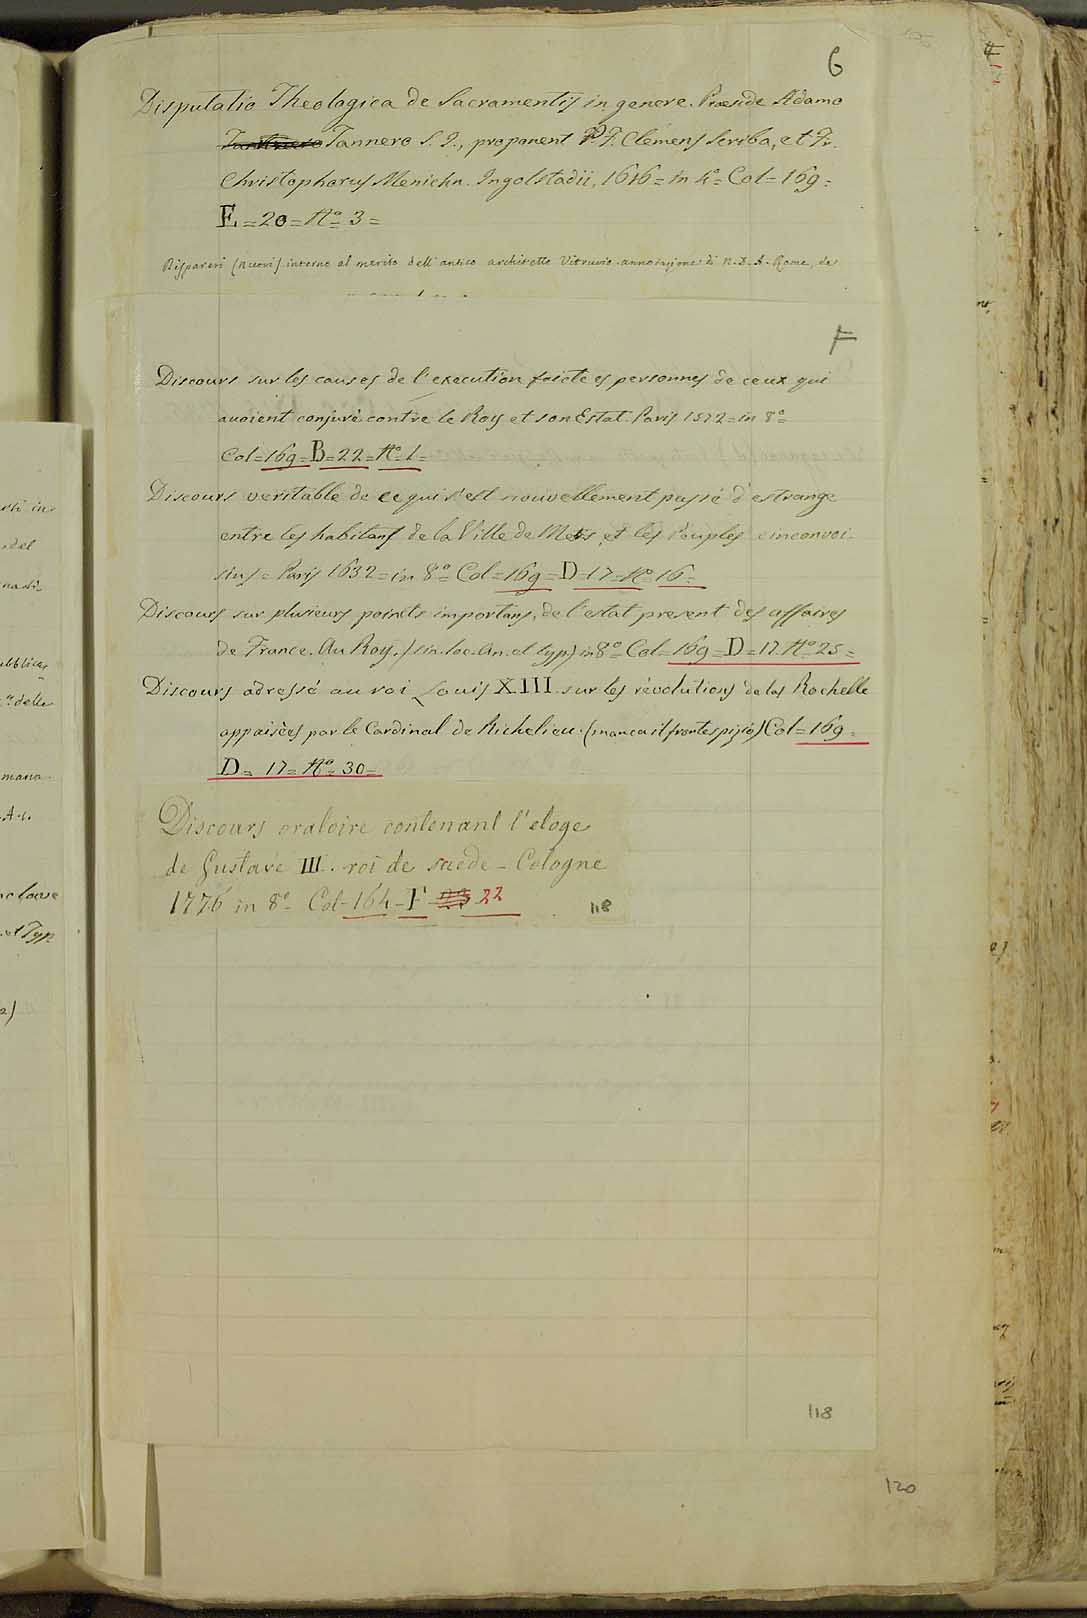 6
Disputatio Theologica de Sacramentis in genere. Praeside Adamo
Tannero S. J., proponent P. F. Clemens Scriba, et Fr.
Christophorus Menichn. Ingolstadii, 1616 = in 4.° = Col = 169 =
E = 20 = N.° 3 =
Rispareri (nuovi) intorno al merito dell'antico architetto Vitruvio annotazione di N. D. A. Rome, de
F
Discours sur les causes de l'execution faicte es personnes de ceux qui
avoient conjuré contre le Roy et son Estat. Paris 1572 = in 8.° =
Col = 169 = B = 22 = N.° 1 =
Discours veritable de ce qui s'est nouvellement passé d'estrange
entre les habitans de la Ville de Mets et les Peuples circonvoi-
sins = Paris 1632 = in 8.° = Col = 169 = D = 17 = N.° 16 =
Discours sur plusieurs points importans, de l'estat present des affaires
de France. Au Roy. (sin. loc. An. et typ) in 8.° = Col = 169 = D = 17. N.° 25 =
Discours adressé au roi Louis XIII sur les révolutions de las Rochelle
appaisées par le Cardinal de Richelieu. (manca il frontespizio) Col = 169 =
D = 17 = N.° = 30 =
Discours oratoire contenant l'eloge
de Gustave III. roi de suede - Cologne
1776 in 8.° - Col - 164 - F 22
118
118
120